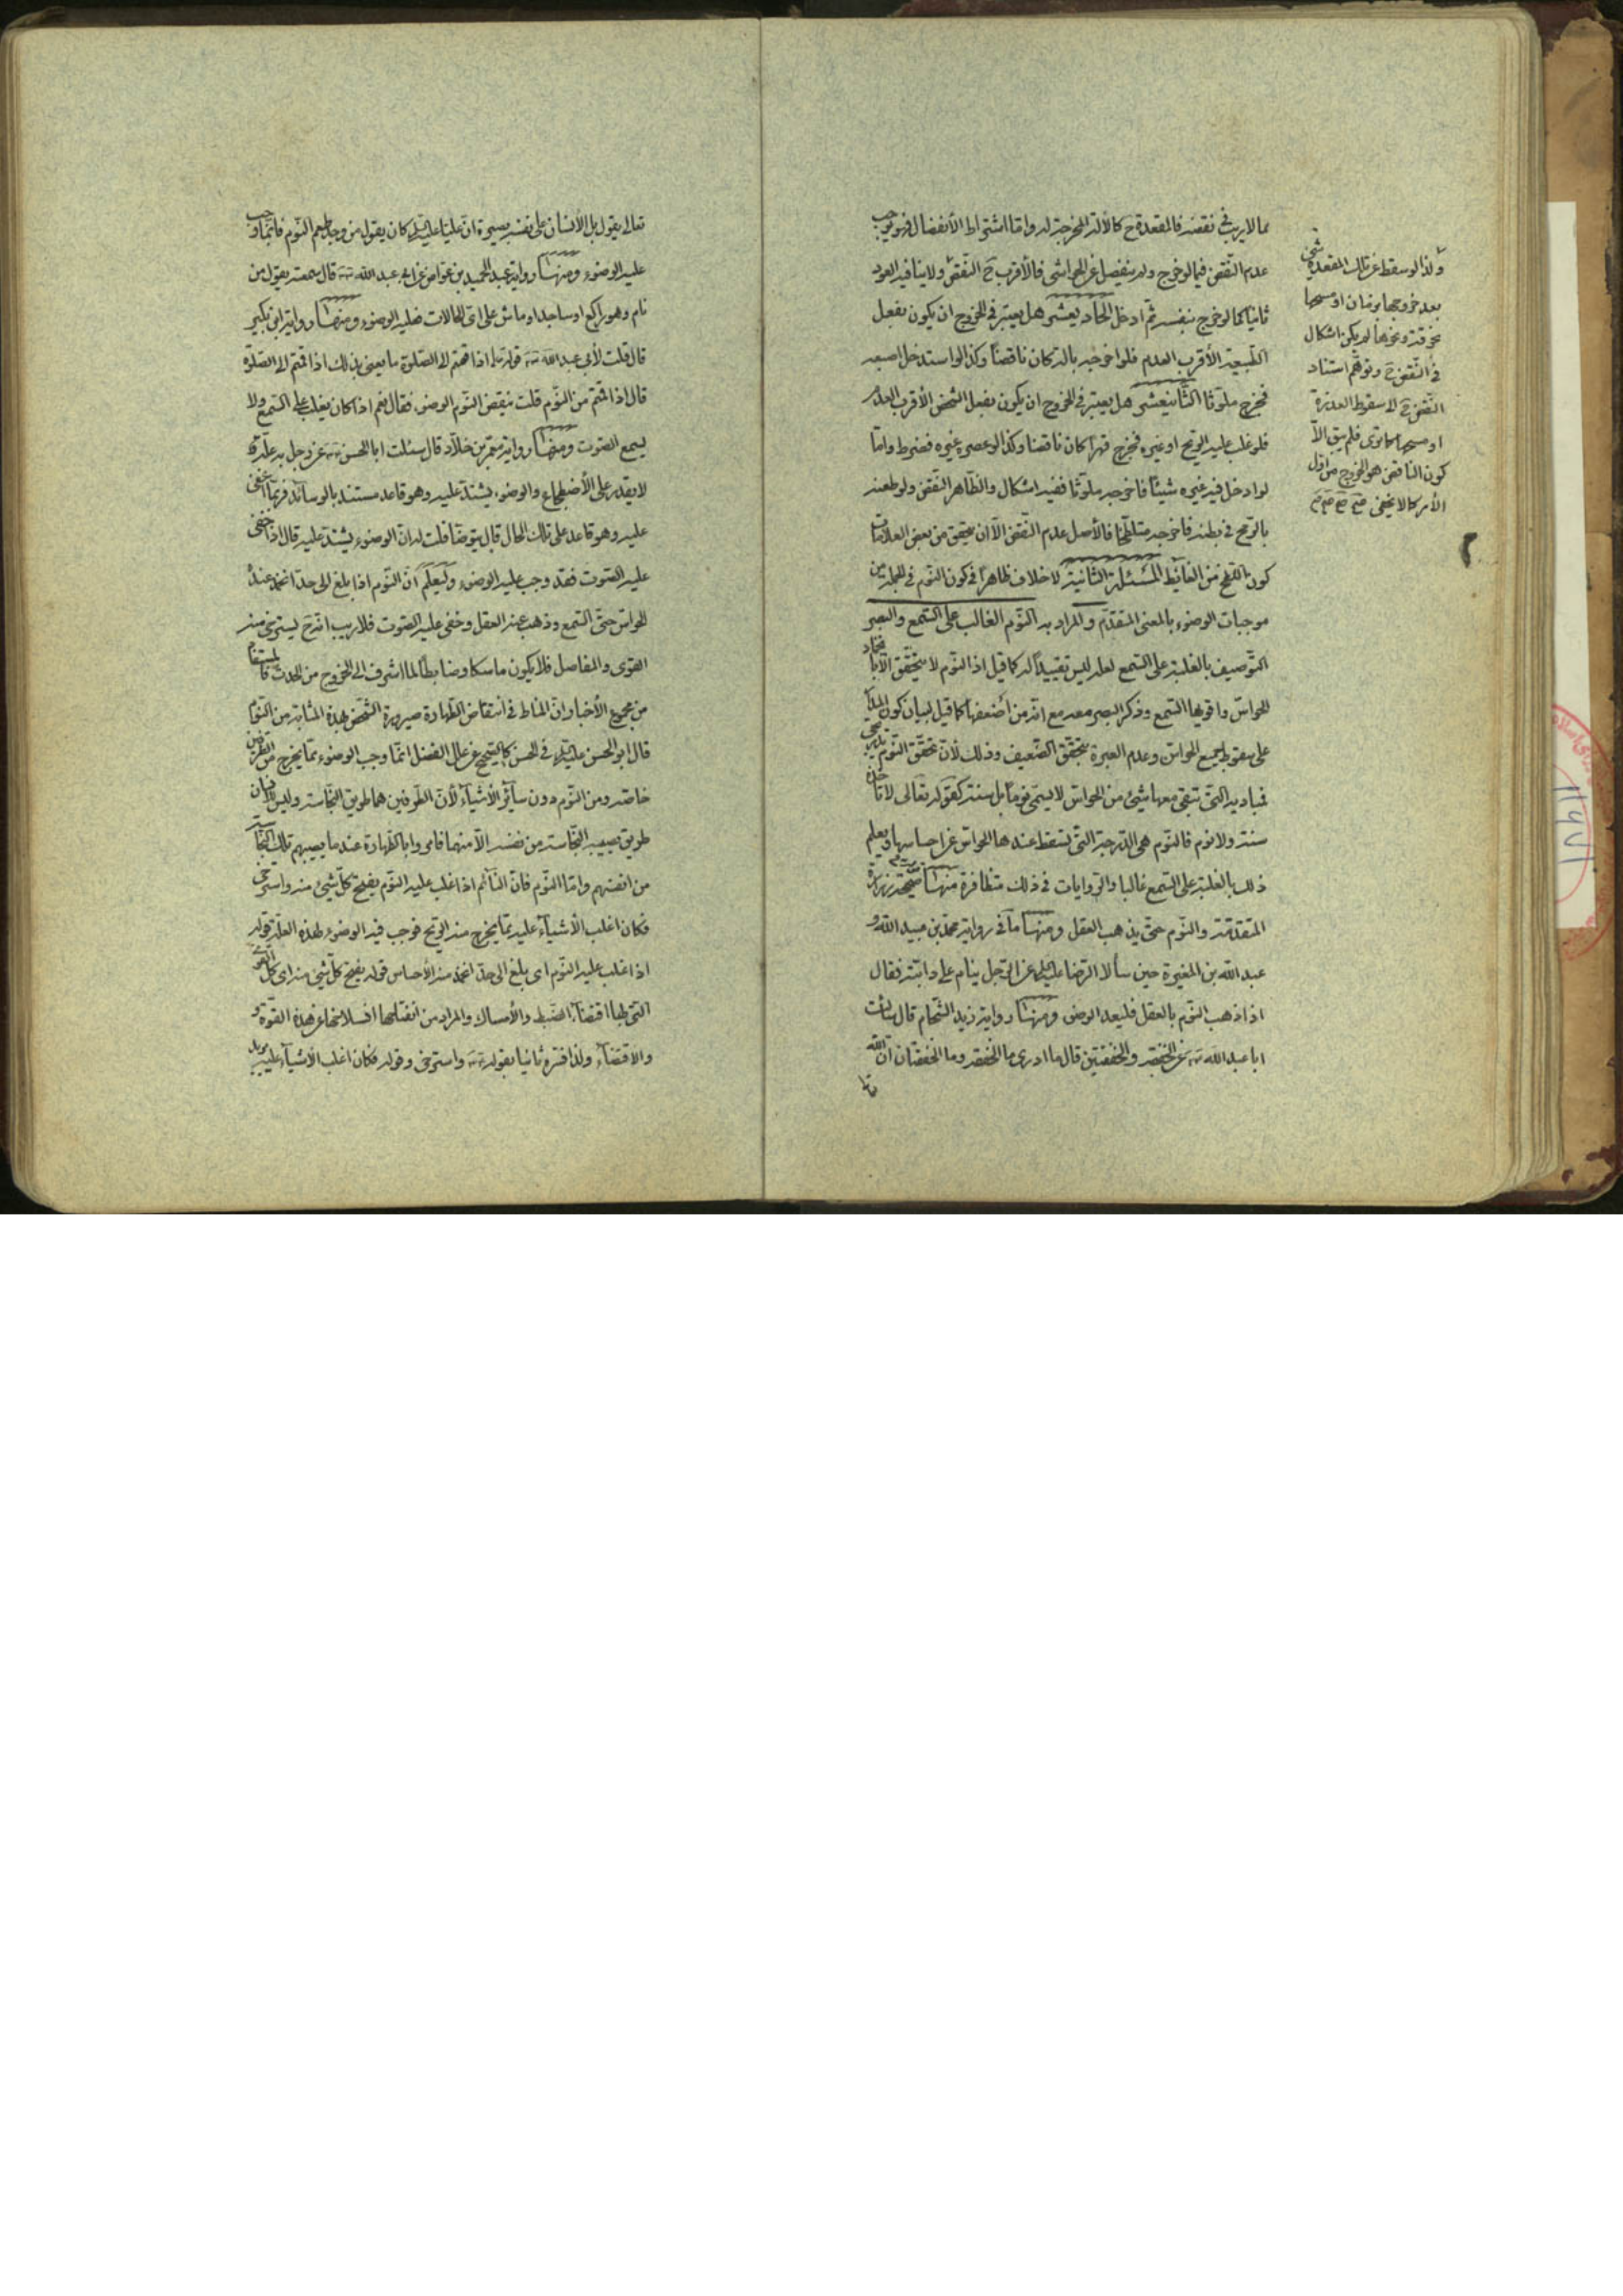 مما لا ريب في نقضه فالمقعدة ح كالآلة المخرجة له واما اشتراط الأنفصال فهو يوجب
عدم النقض فيما لو خرج ولم ينفصل عن الحواشي فالأقرب ح النقض ولا ينافيه العود
ثانيا كما لو خرج بنفسه ثم ادخل الحادي عشر هل يعتبر في الخروج ان يكون بفعل
الطبيعة الأقرب العدم فلو اخرجه بالة كان ناقضا وكذا لو استدخل اصبعه
فخرج ملوثا الثاني عشر هل يعتبر في الخروج ان يكون بفعل الشخص الأقرب العدم
فلو غلب عليه الريح او غيره فخرج قهرا كان ناقضا وكذا لو عصره غيره فضرط واما
لو ادخل فيه غيره شيئا فاخرجه ملوثا ففيه اشكال والظاهر النقض ولو طعنه
بالرمح في بطنه فاخرجه متلطخا فالأصل عدم النقض الا ان يتحقق من بعض العلامات
كون التلطخ من الغائط المسئلة الثانية لا خلاف ظاهرا في كون النوم في الجملة من
موجبات الوضوء بالمعنى المتقدم والمراد به النوم الغالب على السمع والبصر
التوصيف بالغلبة على السمع لعله ليس تقييدا له كما قيل اذ النوم لا يتحقق الا
الحواس واقويها السمع وذكر البصر معه مع انه من أضعفها كما قيل لبيان كون
على سقوط جميع الحواس وعدم العبرة بتحقق الضعيف وذلك لان تحقق النوم
فمباديه التي تبقى معها شيء من الحواس لا يسمى نوما بل سنة كقوله تعالى لا تأخذه
سنة ولا نوم فالنوم هي الدرجة التي تسقط عندها الحواس عن احساسها ويعلم
ذلك بالغلبة على السمع غالبا والروايات في ذلك متظافرة منها صحيحة زرارة
المتقدمة والنوم حتى يذهب العقل ومنها ما في رواية محمد بن عبيد الله و
عبد الله بن المغيرة حين سألا الرضا عليه السلام عن الرجل ينام على دابته فقال
اذا ذهب النوم بالعقل فليعد الوضوء ومنها رواية زيد الشحام قال سألت
ابا عبد الله عن الخفقة والخفقتين قال ما ادري ما الخفقة وما الخفقتان ان الله
تعا
ولذا لو سقط عن تلك المقعدة شيء
بعد خروجها بزمان او مسحها
بخرقة ونحوها لم يكن اشكال
في النقض ح وتوهم استناد
النقض ح لا سقوط العذرة
او مسحها كما ترى فلم يبق الا
كون الناقض هو الخروج من اول
الأمر كما لا يخفى
تعالى يقول بل الأنسان على نفسه بصيرة ان عليا عليه السلام كان يقول من وجد طعم النوم فانما وجب
عليه الوضوء ومنها رواية عبد الحميد بن عواض عن ابي عبد الله قال سمعته يقول من
نام وهو راكع او ساجد او ماش على اي الحالات فعليه الوضوء ومنها رواية ابن بكير
قال قلت لأبي عبد الله قوله تعالى اذا قمتم الى الصلوة ما يعني بذلك اذا قمتم الى الصلوة
قال اذا قمتم من النوم قلت ينقض النوم الوضوء فقال نعم اذا كان يغلب على السمع ولا
يسمع الصوت ومنها رواية معمر بن خلاد قال سئلت ابا الحسن عن رجل به علة
لا يقدر على الأضطجاع والوضوء يشتد عليه وهو قاعد مستند بالوسائد فربما اغفى
عليه وهو قاعد على تلك الحال قال يتوضأ قلت له ان الوضوء يشتد عليه قال اذا خفي
عليه الصوت فقد وجب عليه الوضوء وليعلم ان النوم اذا بلغ الى حد انخمد عنده
الحواس حتى السمع وذهب عنه العقل وخفي عليه الصوت فلا ريب انه ح يسترخي منه
القوى والمفاصل فلا يكون ماسكا وضابطا لما اشرف الى الخروج من الحدث
من مجموع الأخبار ان المناط في انتقاض الطهارة صيرورة الشخص بهذه المثابة من النوم
قال ابو الحسن عليه السلام في الحسن كالصحيح عن علل الفضل انما وجب الوضوء مما يخرج من الطرفين
خاصة ومن النوم دون سائر الأشياء لأن الطرفين هما طريق النجاسة وليس للانسان
طريق يصيبه النجاسة من نفسه الا منهما فامروا بالطهارة عند ما يصيبهم تلك النجاسة
من انفسهم واما النوم فان النائم اذا غلب عليه النوم يفتح كل شيء منه واسترخى
فكان اغلب الأشياء عليه مما يخرج منه الريح فوجب فيه الوضوء لهذه العلة قوله
اذا غلب عليه النوم اي بلغ الى حد انخمد منه الأحساس قوله يفتح كل شيء منه اي كل القوى
التي لها اقتضاء الضبط والأمساك والمراد من انفتاحها انسلاخها عن هذه القوة و
والاقتضاء ولذا فسره ثانيا بقوله واسترخى وقوله فكان اغلب الأشياء عليه